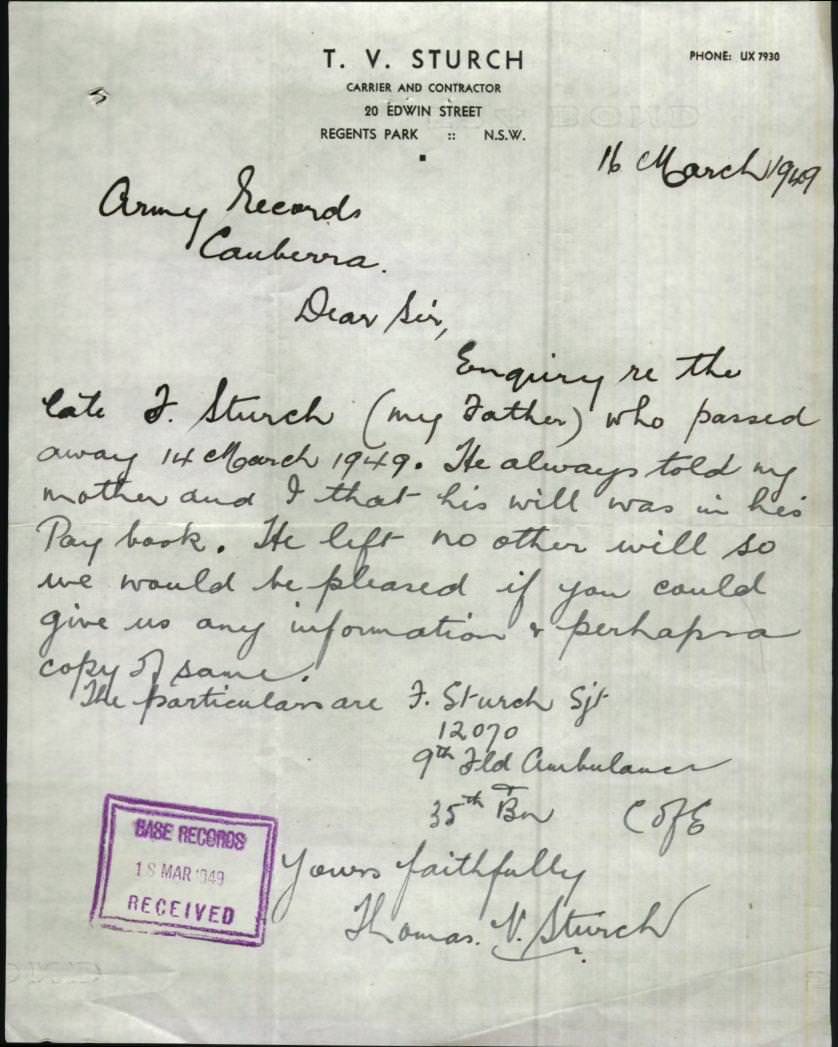 T. V. STURCH
PHONE: UX 7930
CARRIER AND CONTRACTOR
20 EDWIN STREET
REGENTS PARK :: N.S.W.
16 March 1949
Army Records
Canberra.
Dear Sir,
Enquiry re the
late F. Sturch (my Father) who passed
away 14 March 1949. He always told my
mother and I that his will was in his
Pay book. He left no other will so
we would be pleased if you could
give us any information & perhaps a
copy of same.
The particulars are F. Sturch Sjt
12070
9th Fld Ambulance
35th Bn C of E
BASE RECORDS
18 MAR 1949
RECEIVED
Yours faithfully
Thomas. V. Sturch